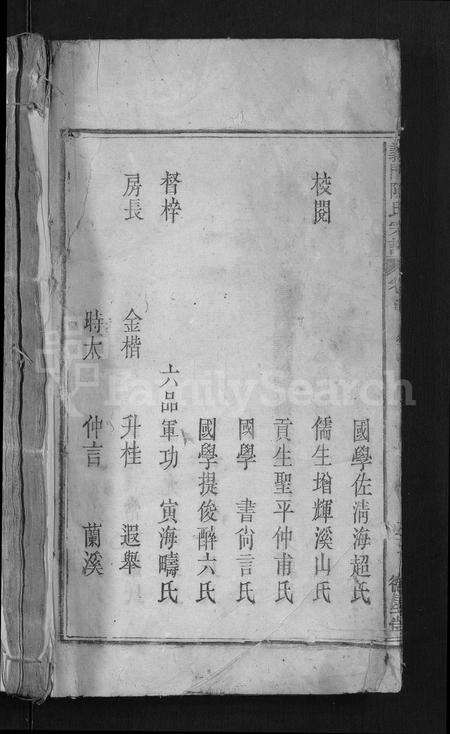 國學佐清海超氏
校閱
儒生增輝溪山氏
貢生聖平仲甫氏
國學 書尚言氏
國學提後醉六氏
督梓
六品軍功 寅海疇氏
房長
金楷 升桂 遐舉
時太 仲言 蘭溪
FamilySearch